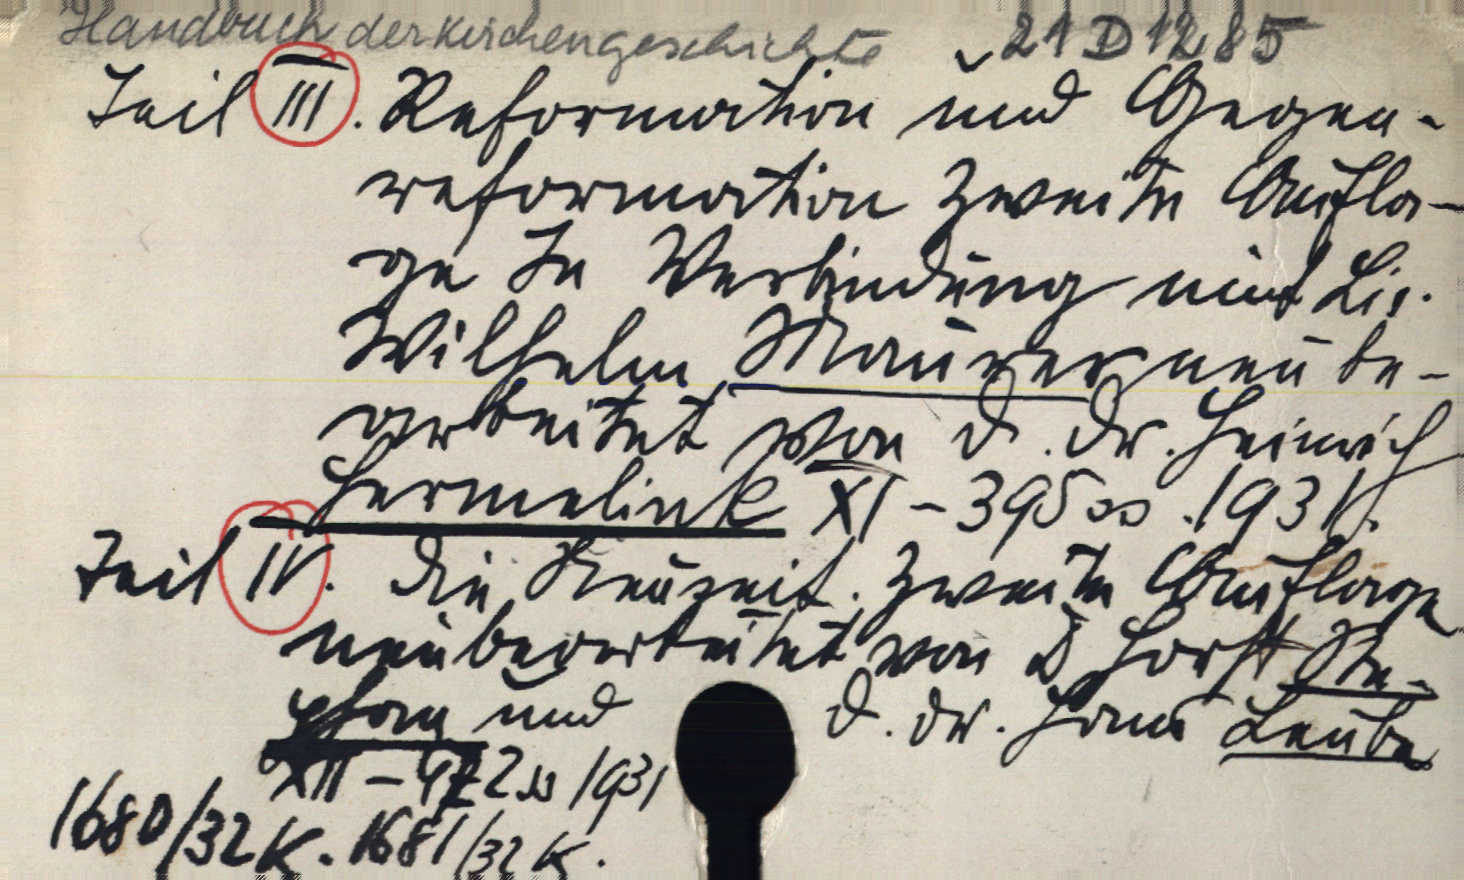 Handbuch der Kirchengeschichte 21 D 1285
Teil III. Reformation und Gegen-
reformation Zweite Aufla-
ge In Verbindung mit Lic.
Wilhelm Maurer neu be-
arbeitet von D. Dr. Heinrich
Hermelink XI - 395 ss. 1931.
Teil IV. Die Neuzeit. Zweite Auflage
neubearbeitet von D Horst Ste-
phan und D. Dr. Hans Leube
XII - 472 ss 1931
1680/32 K. 1681/32 K.